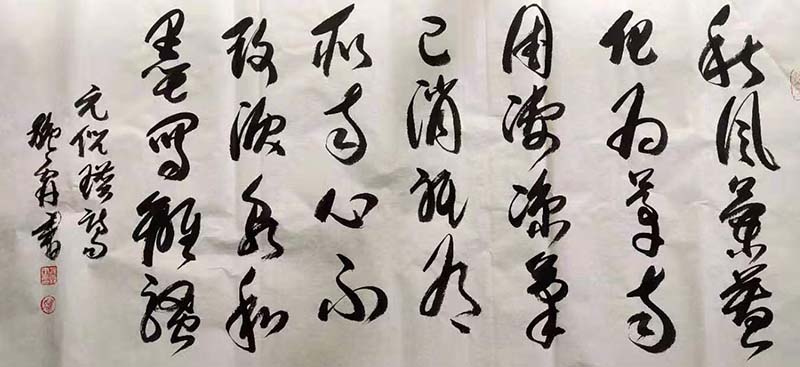 秋風蘭蕙
化為茅南
國淒涼氣
已消祇有
所南心不
改淚泉和
墨寫離騷
元倪瓚詩
書